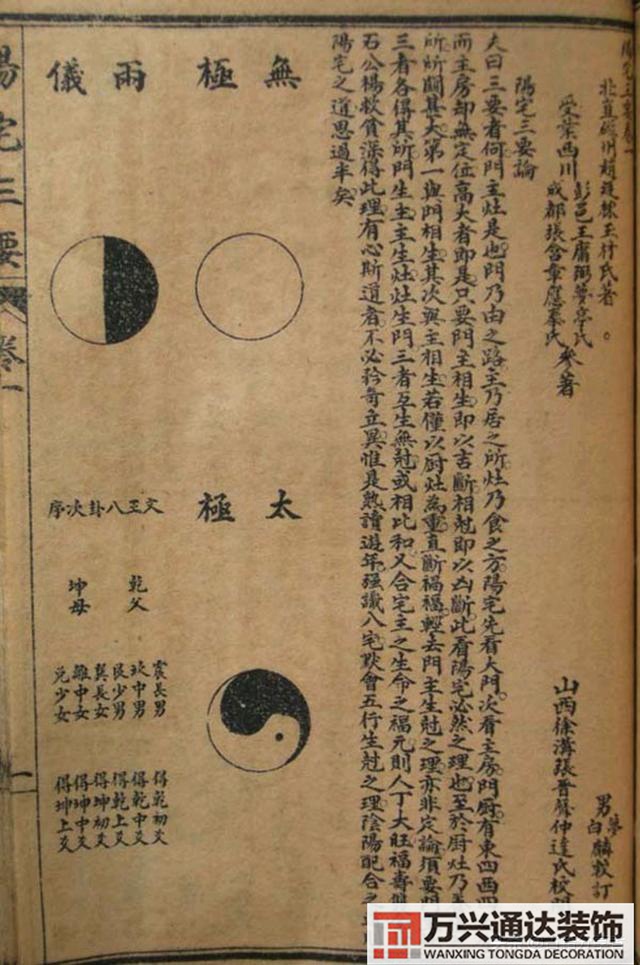 北直磁州趙廷棟玉材氏著
受業西川
彭邑王庸弼夢亭氏
成都張含章應奉氏
參著
山西徐溝張晉蕃仲達氏校
男
夢
白
麟校訂
陽宅三要論
夫曰三要者何門主灶是也門乃由之路主乃居之所灶乃食之方陽宅先看大門次看主房門厨有東四西四
而主房却無定位高大者即是只要門主相生即以吉斷相尅即以凶斷此看陽宅必然之理也至於厨灶乃養
所所關甚大第一與門相生其次與主相生若僅以厨灶為重直斷禍福輕去門主生尅之理亦非定論須要門
三者各得其所門生主主生灶灶生門三者互生無尅或相比和又合宅主之生命之福元則人丁大旺福壽
石公楊救貧深得此理有心斯道者不必矜奇立異惟是熟讀遊年强識八宅默會五行生尅之理陰陽配合之
陽宅之道思過半矣
無極
太極
兩儀
文王八卦次序
乾父
坤母
震長男 得乾初爻
坎中男 得乾中爻
艮少男 得乾上爻
巽長女 得坤初爻
離中女 得坤中爻
兌少女 得坤上爻
陽宅三要
卷一
一
万兴通达装饰
WANXING TONGDA DECORATION